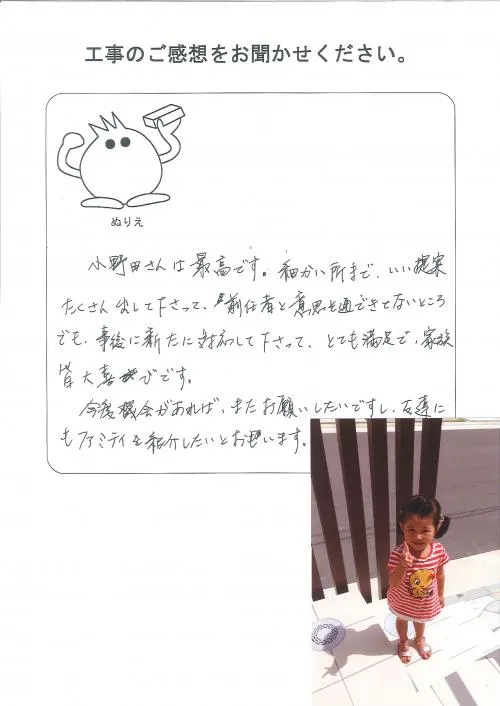 工事のご感想をお聞かせください。
ぬりえ
小野田さんは最高です。細かい所まで、いい提案
たくさん出して下さって、前任者と意思も通できてないところ
でも、事後に新たに対応して下さって、とても満足で、家族
皆大喜びです。
今後機会があれば、またお願いしたいですし、友達に
もファミテイを紹介したいとお思います。